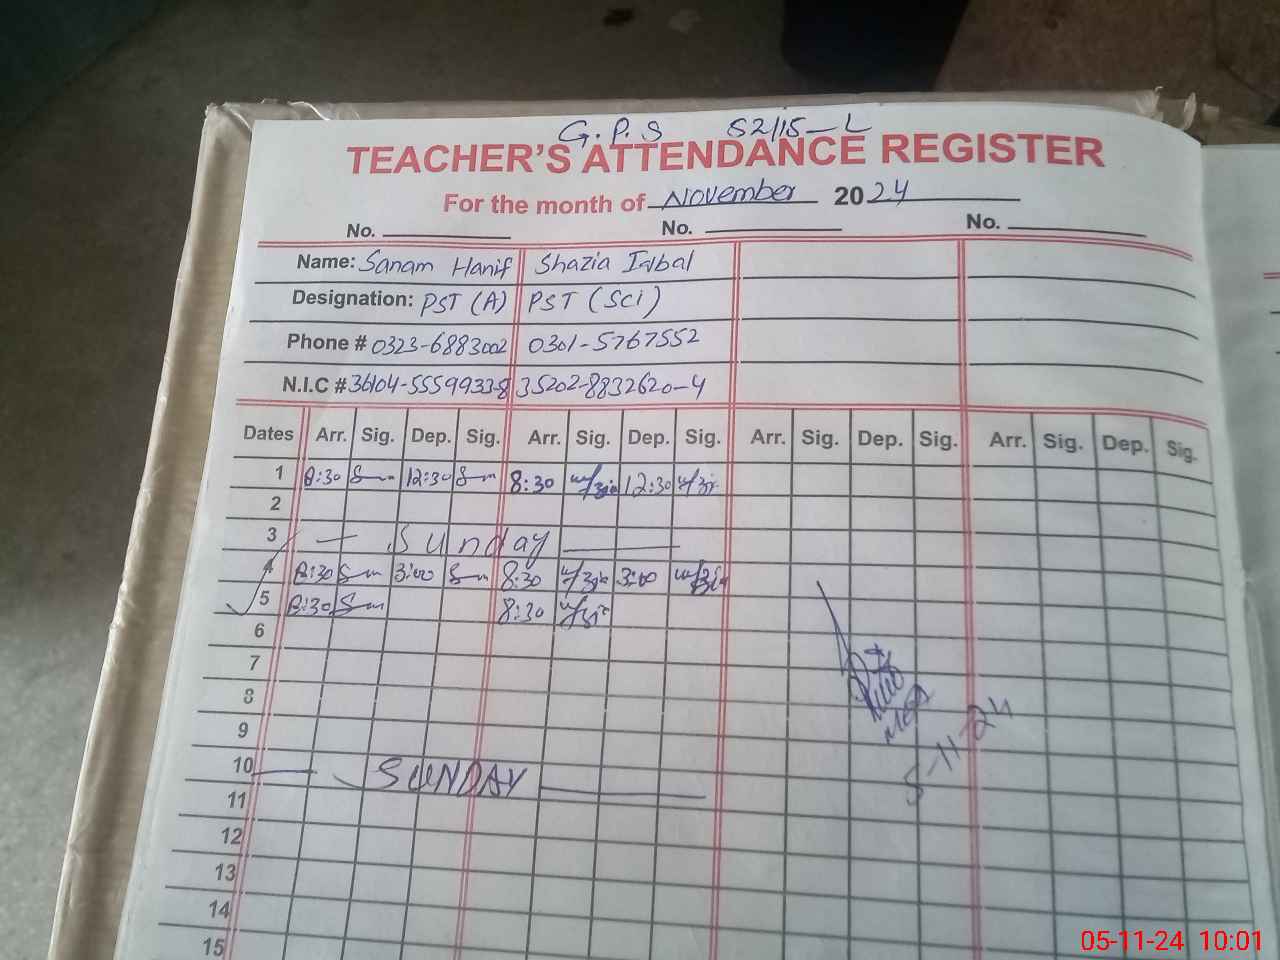 G.P.S 52/15-L
TEACHER'S ATTENDANCE REGISTER
For the month of November 2024
No. No. No.
Name: Sanam Hanif Shazia Iqbal
Designation: PST (A) PST (Sci)
Phone # 0323-6883002 0301-5767552
N.I.C # 36104-5559933-8 35202-8832620-4
Dates Arr. Sig. Dep. Sig. Arr. Sig. Dep. Sig. Arr. Sig. Dep. Sig. Arr. Sig. Dep. Sig.
1 8:30 12:30 8:30 12:30
2
3 Sunday
4 8:30 3:00 8:30 3:00
5 8:30 8:30
6
7
8
9
10 SUNDAY
11
12
13
14
15
5-11-24
05-11-24 10:01